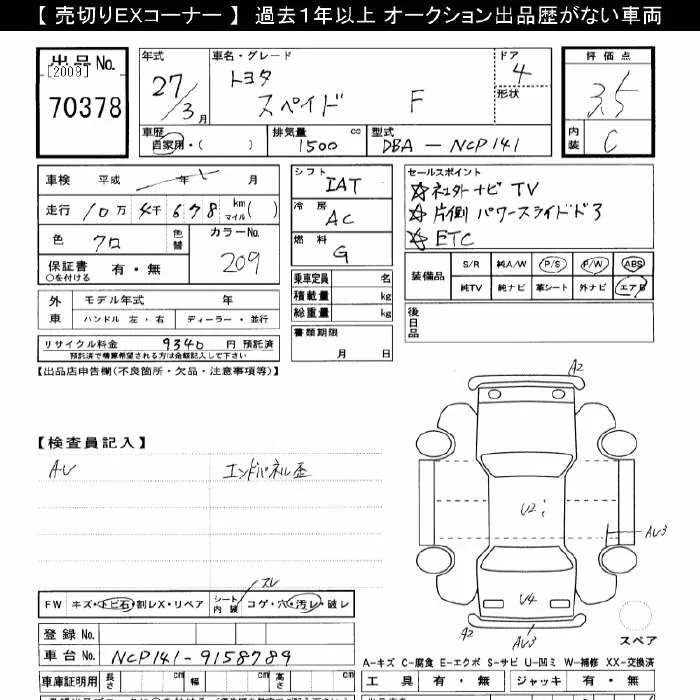 【 売切りEXコーナー 】 過去1年以上 オークション出品歴がない車両
出品No.
[2009]
70378
年式
27/3月
車名・グレード
トヨタ
スペイド F
ドア
4
形状
評価点
3.5
内装
C
車歴
自家用・( )
排気量
1500 cc
型式
DBA - NCP141
車検 平成 年 月
走行 10万 4千 678 km マイル ( )
色 クロ
色替
カラーNo.
209
保証書 有・無
○を付ける
外車
モデル年式 年
ハンドル 左・右 ディーラー・並行
リサイクル料金 9340 円 預託済
預託済で精算希望される方は金額記入して下さい
シフト
IAT
冷房
AC
燃料
G
乗車定員 名
積載量 kg
総重量 kg
書類期限
月 日
セールスポイント
☆社外ナビ TV
☆片側 パワースライドドア
☆ETC
装備品
S/R 純A/W P/S P/W ABS
純TV 純ナビ 革シート 外ナビ エアB
後日品
【出品店申告欄(不良箇所・欠品・注意事項等)】
【検査員記入】
AU
エンドパネル歪
A2
U2
AU3
U4
A2
AU3
スペア
スレ
FW キズ・トビ石・割レX・リペア
シート内装
コゲ・穴・汚レ・破レ
登録No.
車台No. NCP141-9158789
A-キズ C-腐食 E-エクボ S-サビ U-凹ミ W-補修 XX-交換済
車庫証明用 長さ cm 幅 cm 高さ cm
工具 有・無 ジャッキ 有・無